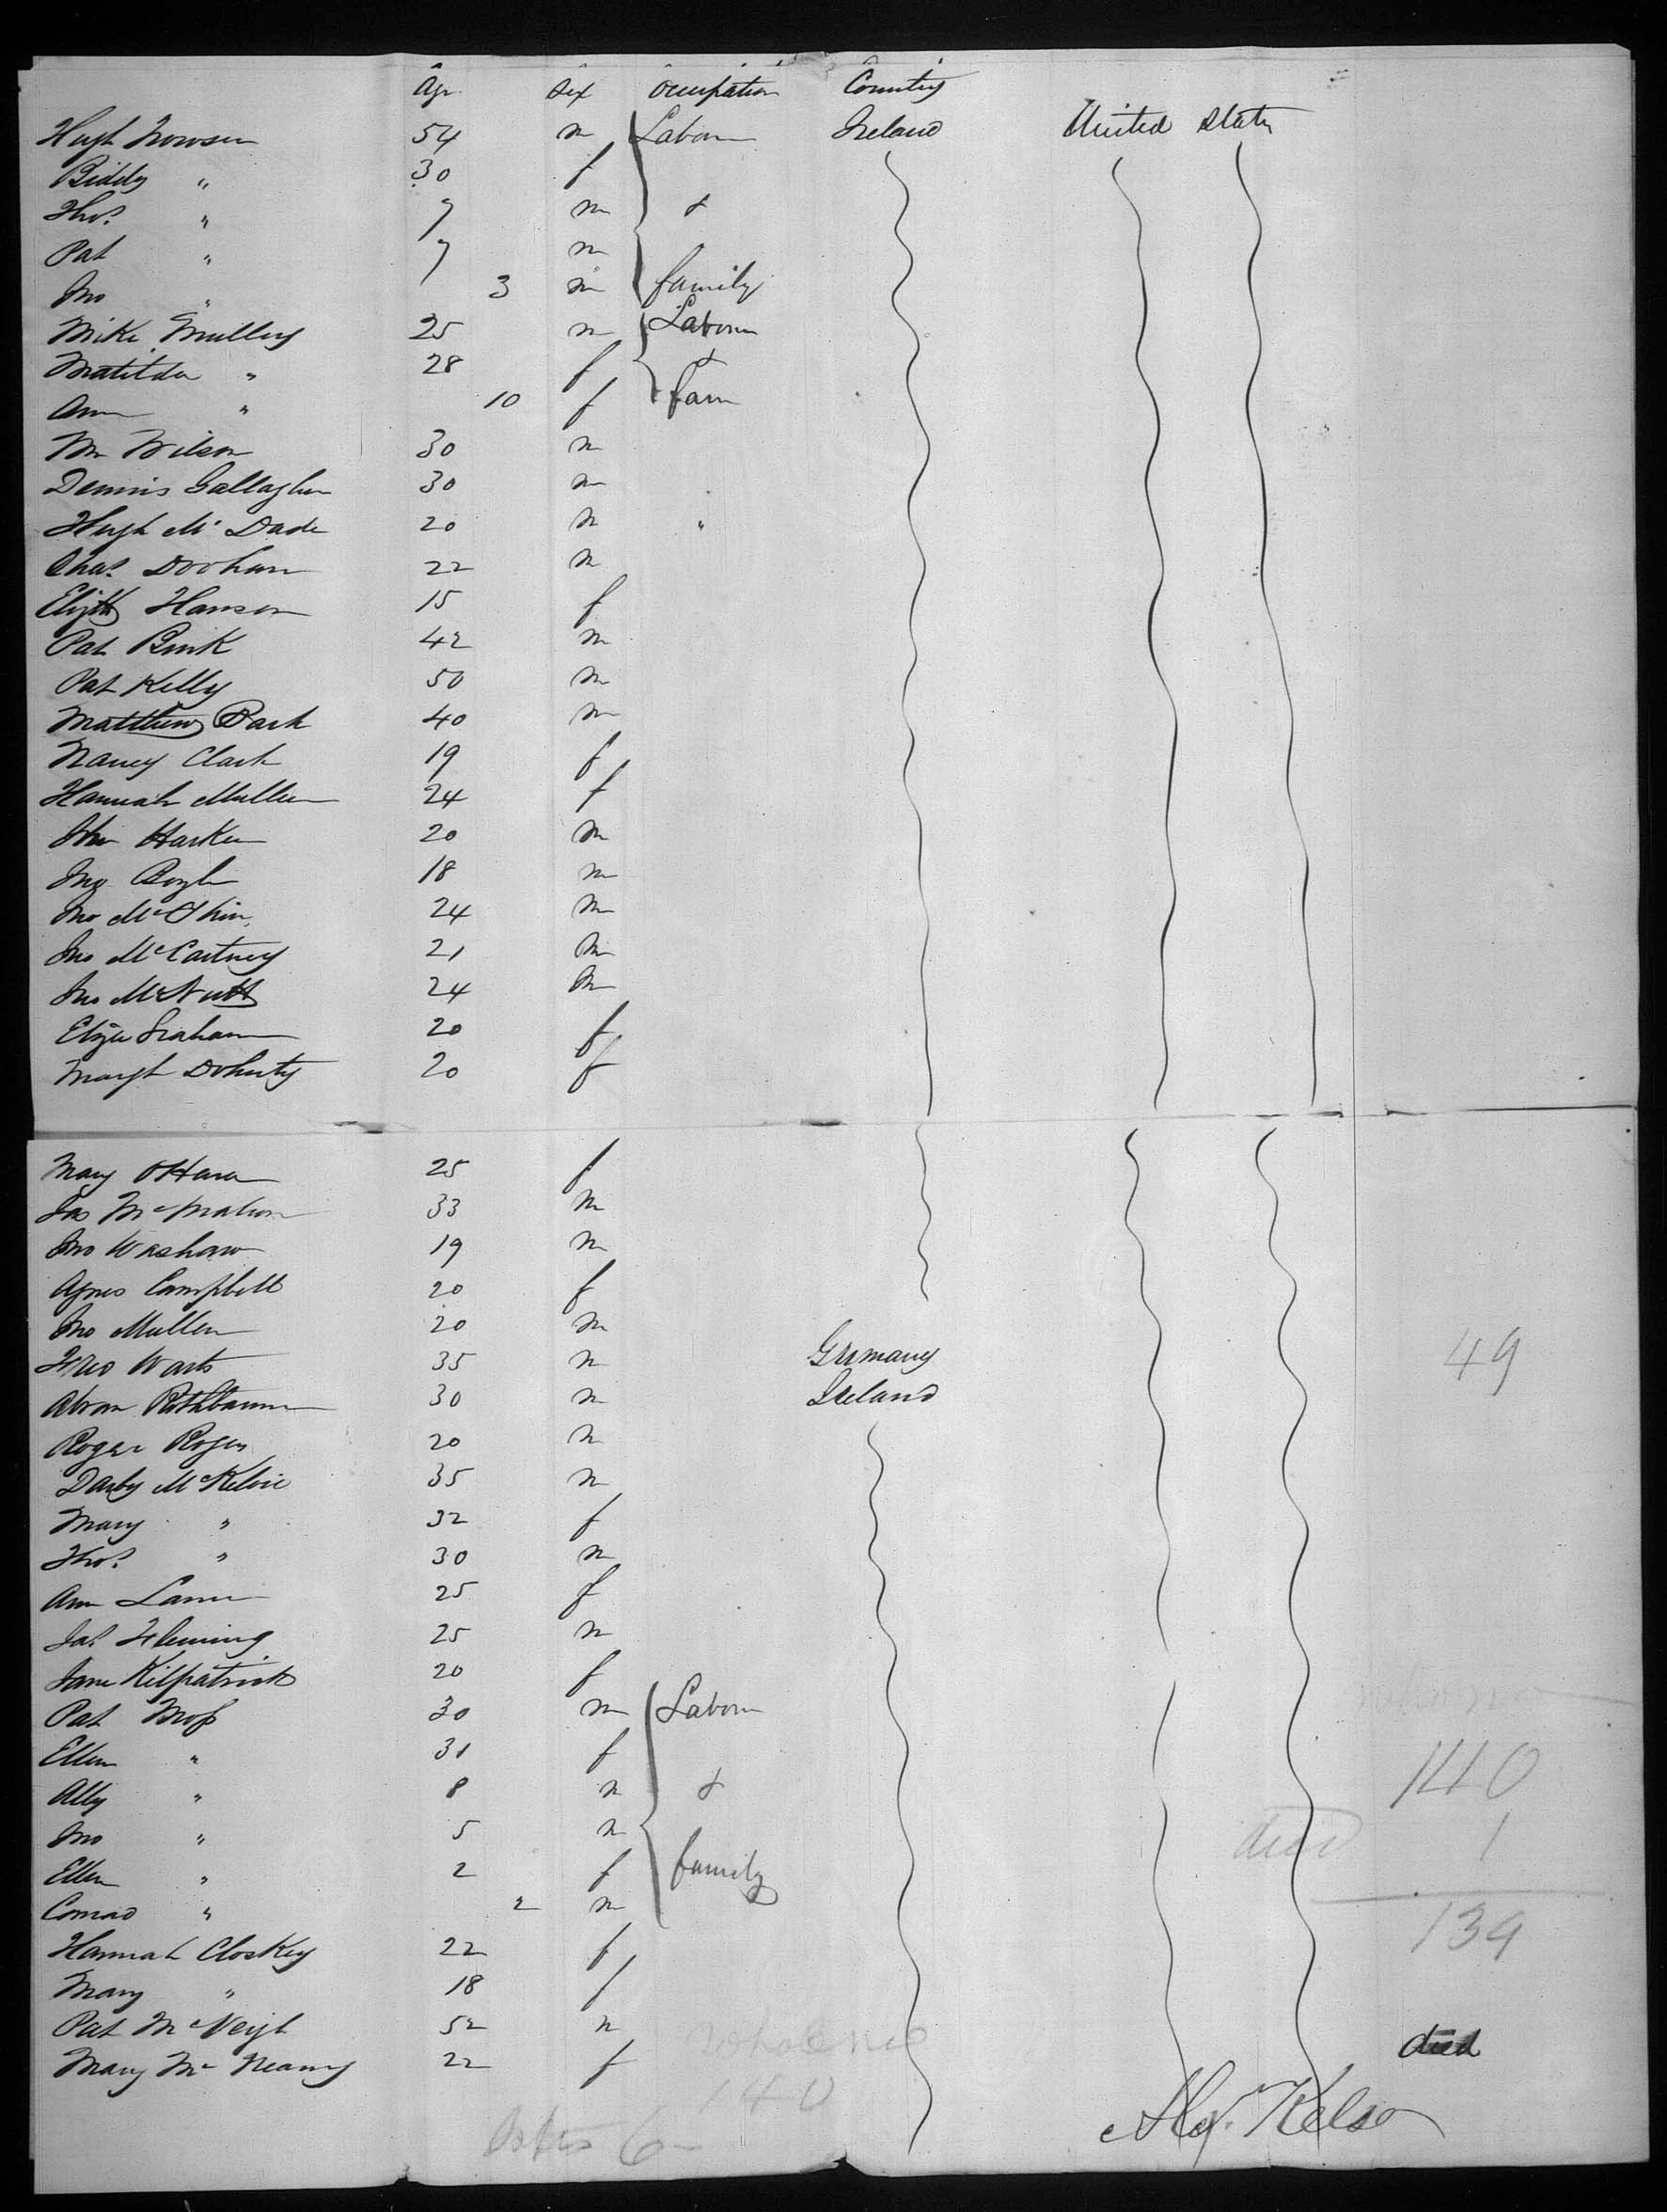 Age Sex Occupation Country
Hugh 54 m Labor Ireland United States
Biddy " 30 f
Thos. " 7 m &
Pat " 7 m
Jno " 3 m family
Mike Mullery 25 m Labour
Matilda " 28 f &
Ann " 10 f fam
Wm Wilson 30 m
Dennis Gallagher 30 m
Hugh Mc Dade 20 m "
Chas. Doohan 22 m
Elizth Hanson 15 f
Pat Bink 42 m
Pat Kelly 50 m
Matthew Park 40 m
Nancy Clark 19 f
Hannah Mullen 24 f
John Harken 20 m
Boyle 18 m
Jno 24 m
Jno McCartney 21 m
Jno McNutt 24 m
Eliza Graham 20 f
Margt Doherty 20 f
Mary OHara 25 f
Jas McMahon 33 m
Jno Washaw 19 m
Agnes Campbell 20 f
Jno Mullen 20 m
Warts 35 m Germany 49
Abram Rathbaum 30 m Ireland
Roger Roger 20 m
Darby McKelvie 35 m
Mary " 32 f
Thos. " 30 m
Ann 25 f
Jas. Fleming 25 m
Jane Kilpatrick 20 f
Pat Moss 30 m Labour
Ellen " 31 f 140
Ally " 8 m &
Jno " 5 m died 1
Ellen " 2 f family
Conrad " 2 m 139
Hannah Closkey 22 f
Mary " 18 f
Pat McVeigh 52 m whole no died
Mary Mc Neamy 22 f
140 Alex. Kelso
6